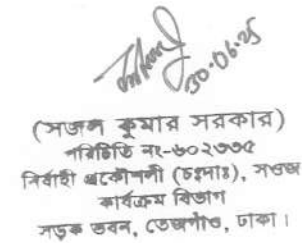 ৩০.০৬.২৫
(সজল কুমার সরকার)
পরিচিতি নং-৬০২৭৩৫
নির্বাহী প্রকৌশলী (চঃদাঃ), সওজ
কার্যক্রম বিভাগ
সড়ক ভবন, তেজগাঁও, ঢাকা।